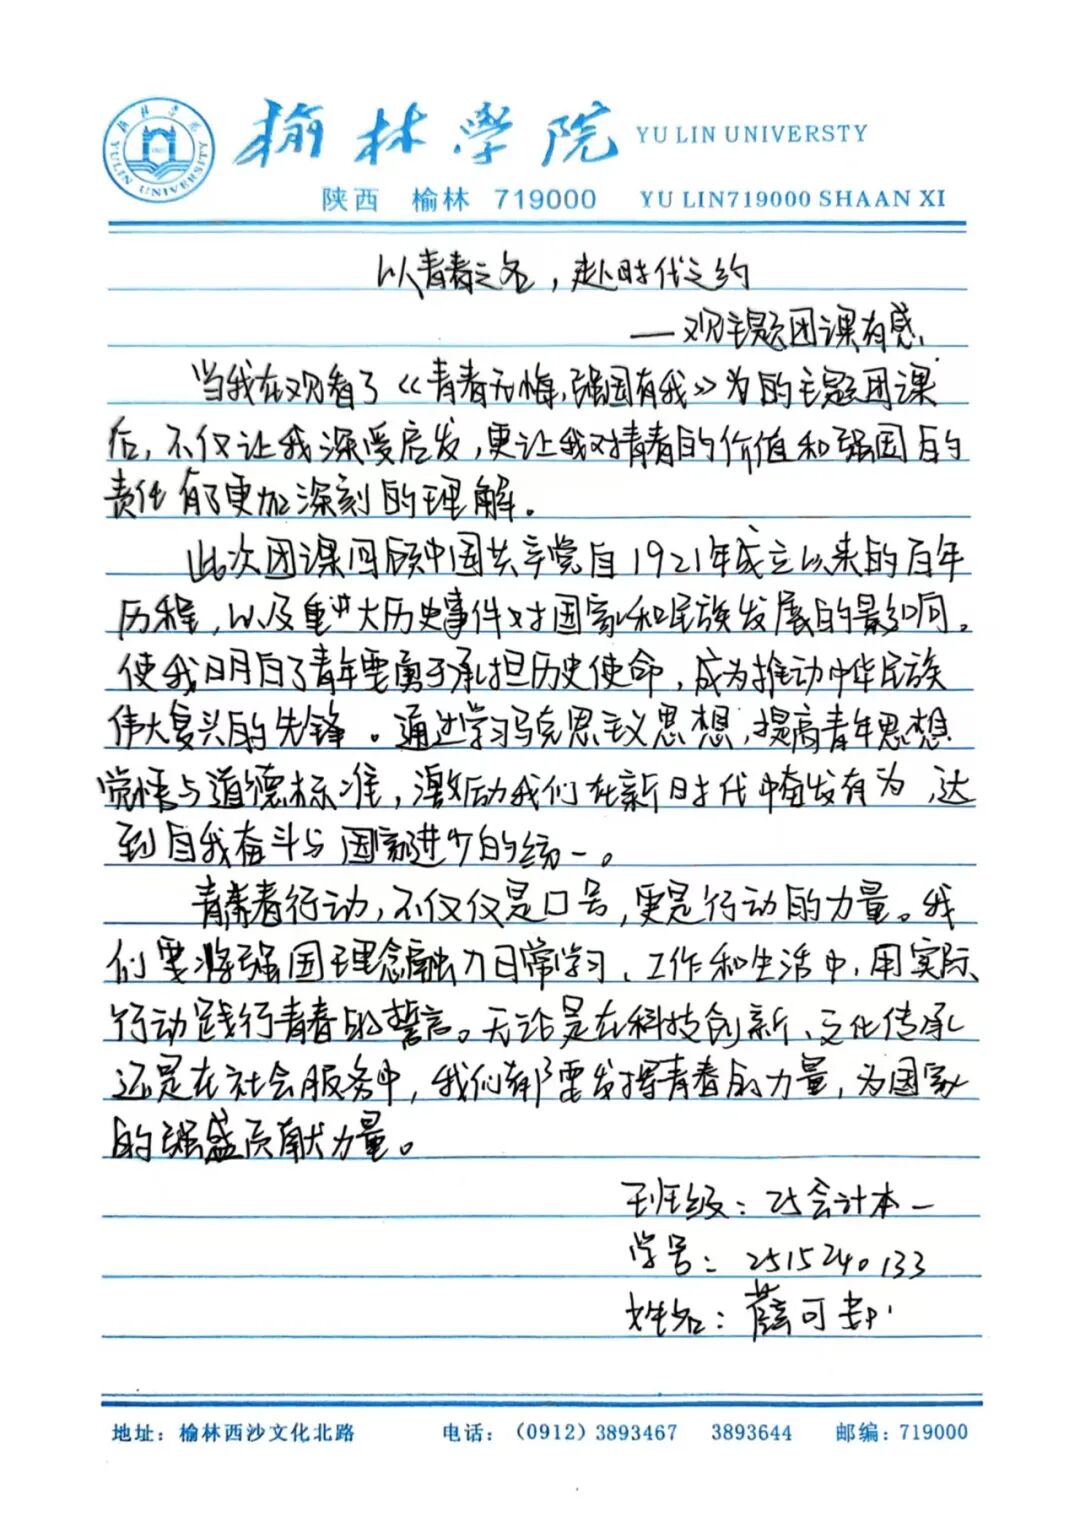 榆林学院 YU LIN UNIVERSTY
榆林学院
YULIN UNIVERSITY
陕西 榆林 719000 YU LIN719000 SHAAN XI
以青春之名，赴时代之约
——观主题团课有感
当我在观看了《青春无悔，强国有我》为的主题团课
后，不仅让我深受启发，更让我对青春的价值和强国的
责任有了更加深刻的理解。
此次团课回顾中国共产党自1921年成立以来的百年
历程，以及重大历史事件对国家和民族发展的影响。
使我明白了青年要勇于承担历史使命，成为推动中华民族
伟大复兴的先锋。通过学习马克思主义思想，提高青年思想
觉悟与道德标准，激励我们在新时代中奋发有为，达
到自我奋斗与国家进步的统一。
青春行动，不仅仅是口号，更是行动的力量。我
们要将强国理念融入日常学习、工作和生活中，用实际
行动践行青春的誓言。无论是在科技创新、文化传承
还是在社会服务中，我们都要发挥青春的力量，为国家
的强盛贡献力量。
班级：25会计本一
学号：2515240133
姓名：薛可
地址：榆林西沙文化北路 电话：(0912) 3893467 3893644 邮编：719000